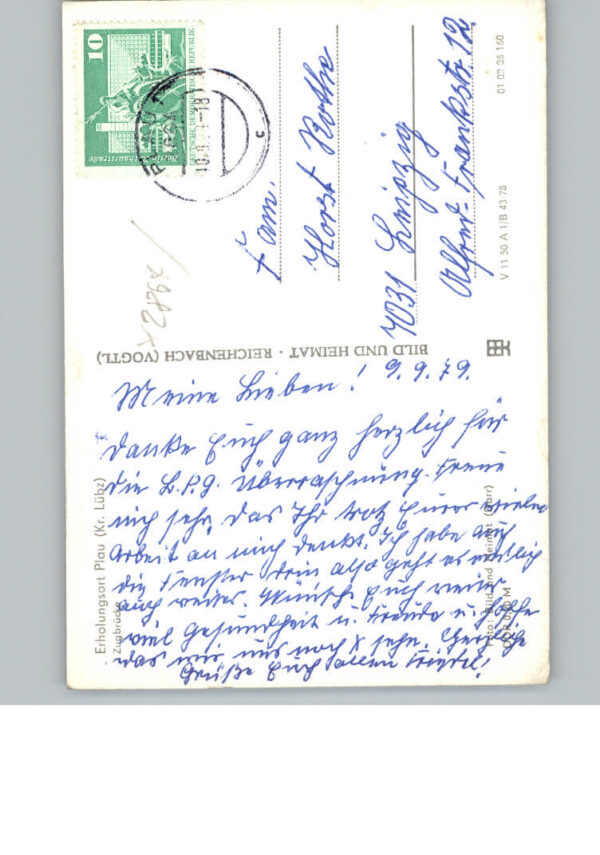 Meine Lieben! 9.9.79.
Danke Euch ganz herzlich für
die L.P.g. Überraschung. Freue
mich sehr, das Ihr trotz Eurer vielen
Arbeit an mich denkt. Ich habe auch
die Fenster drin also geht es endlich
auch weiter. Wünsche Euch weiter
viel Gesundheit u. Freude u. hoffe
das wir uns noch x sehn. Herzliche
Grüße Euch allen
Fam.
Horst Rothe
7031 Leipzig
Alfred-Frankstr. 12
10
DEUTSCHE DEMOKRATISCHE REPUBLIK
PLAU
BILD UND HEIMAT · REICHENBACH (VOGTL)
Erholungsort Plau (Kr. Lübz)
Zugbrücke
V 11 50 A 1/B 43 78
01 02 05 160